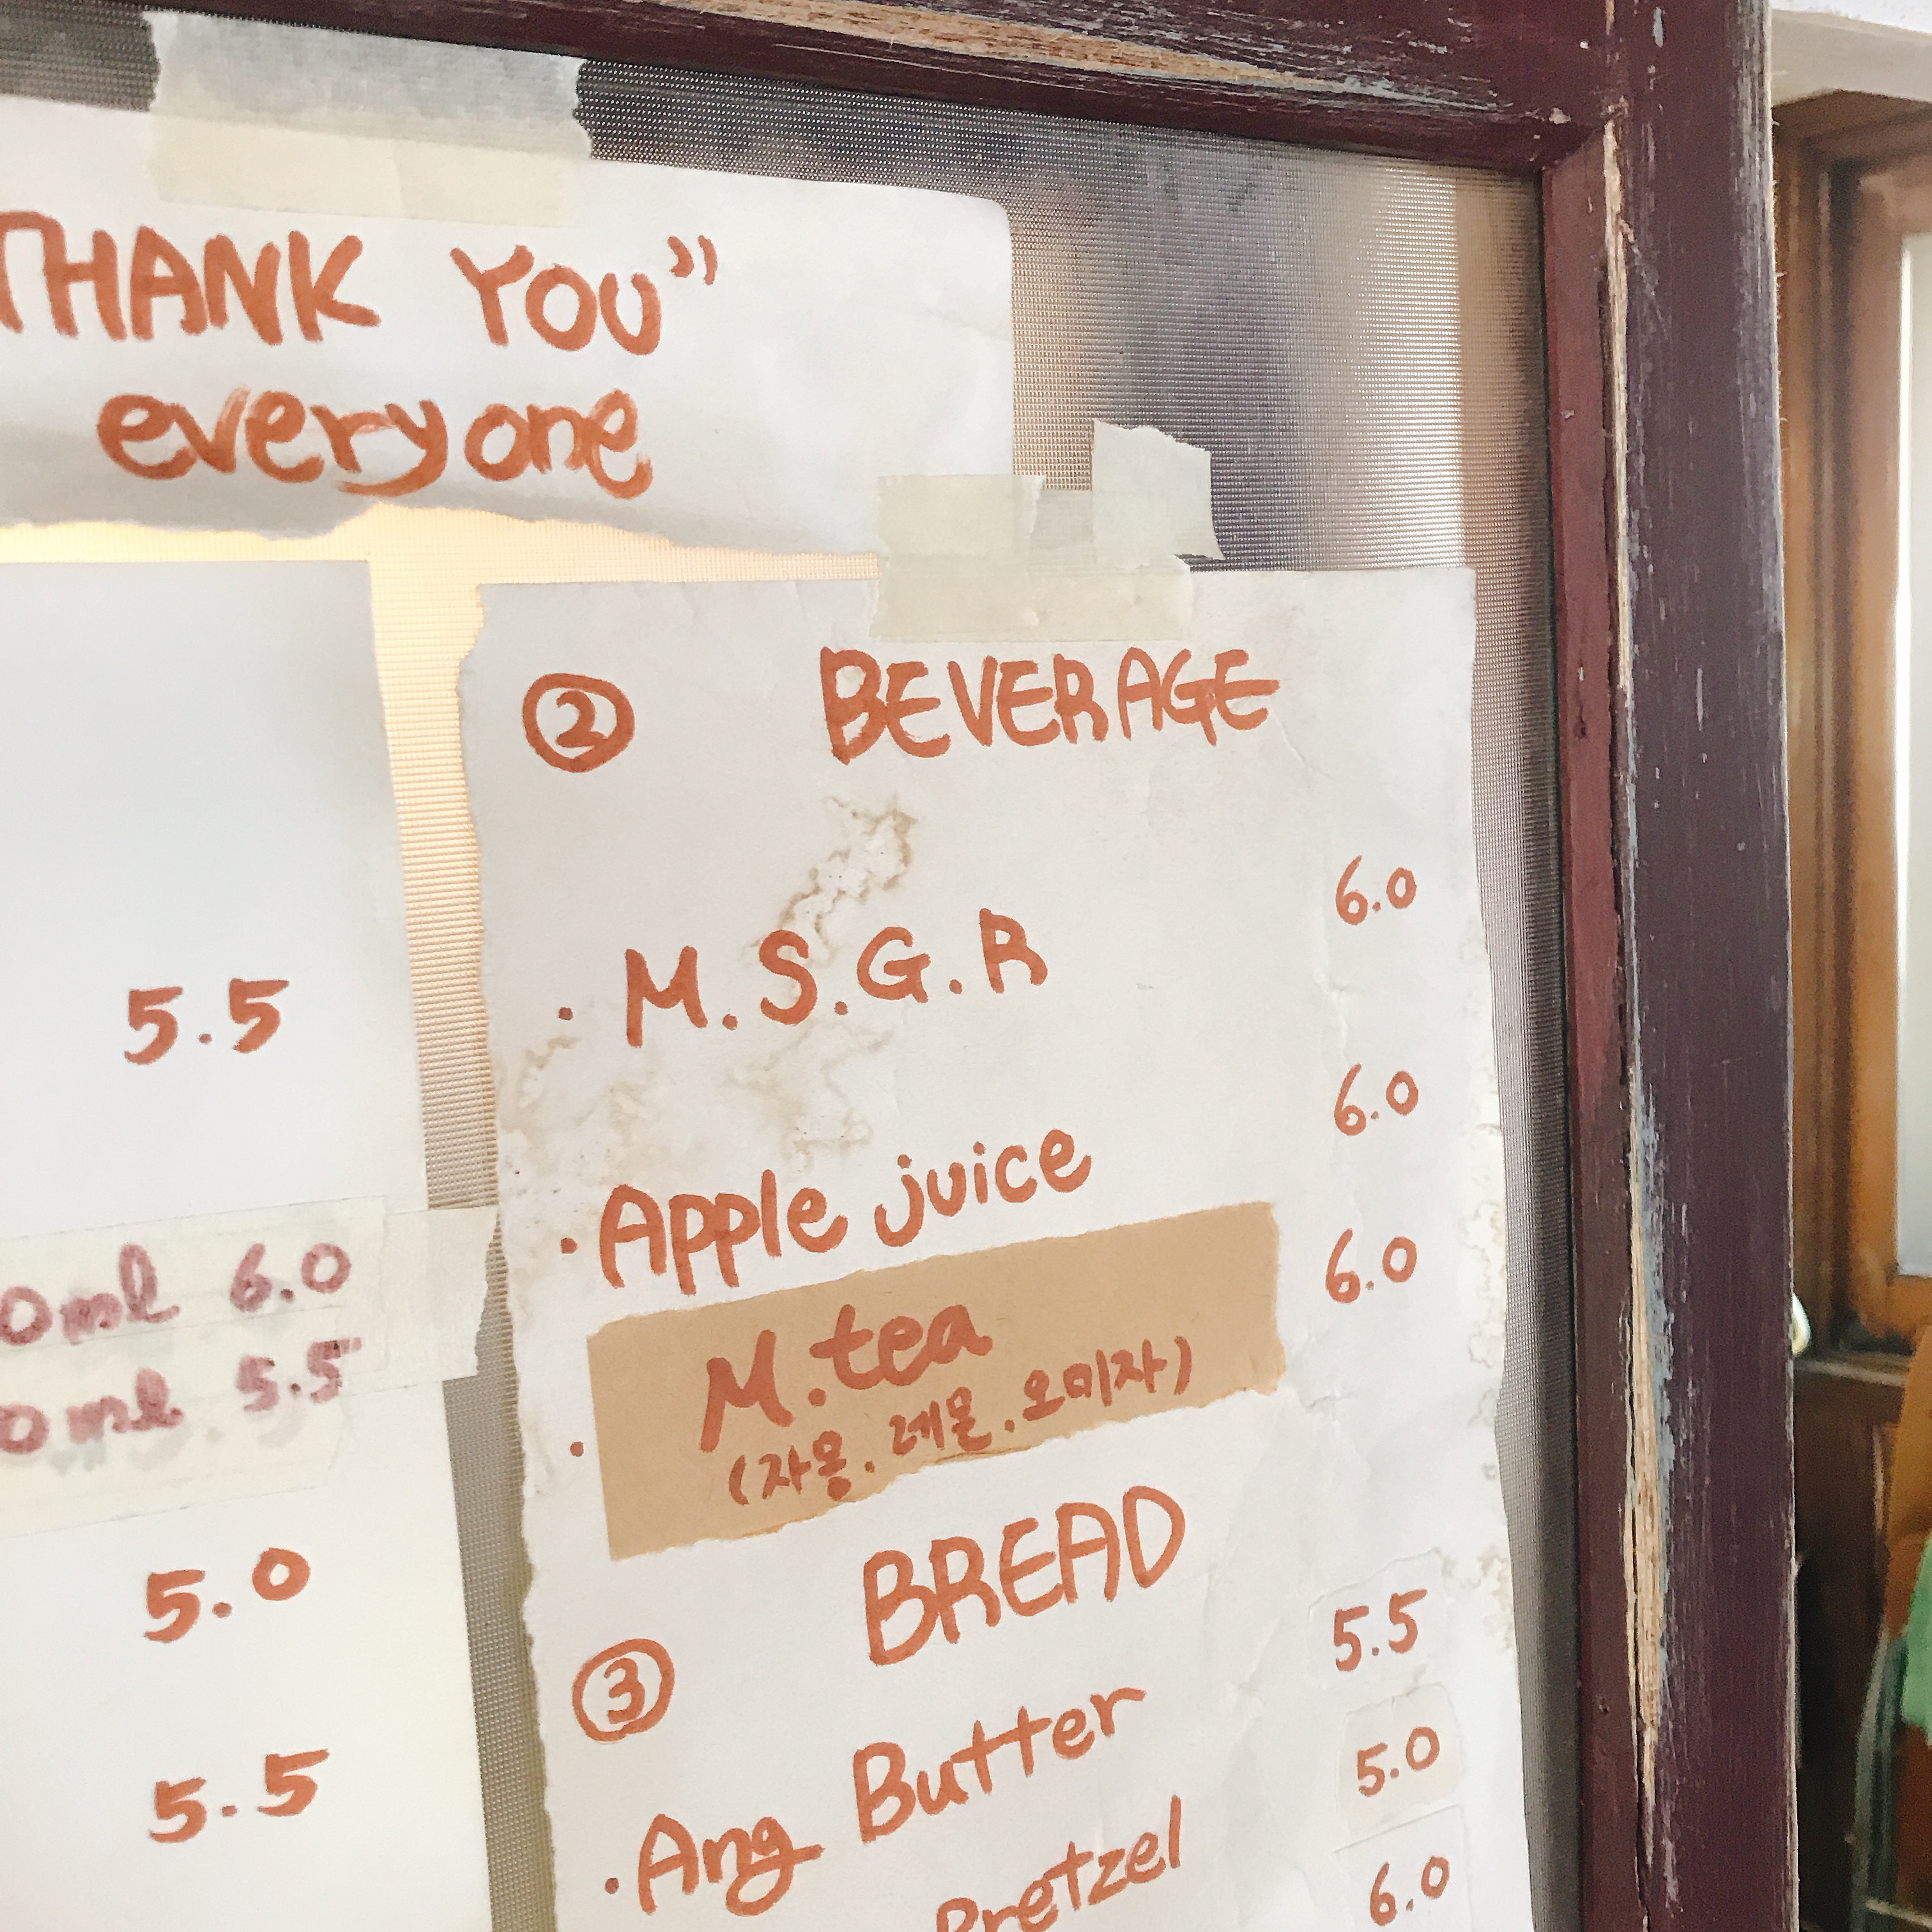 THANK YOU"
everyone
5.5
0ml 6.0
0ml 5.5
5.0
5.5
② BEVERAGE
· M.S.G.R 6.0
· Apple juice 6.0
· M.tea 6.0
(자몽.레몬.오미자)
③ BREAD
· Ang Butter 5.5
Pretzel 5.0
6.0